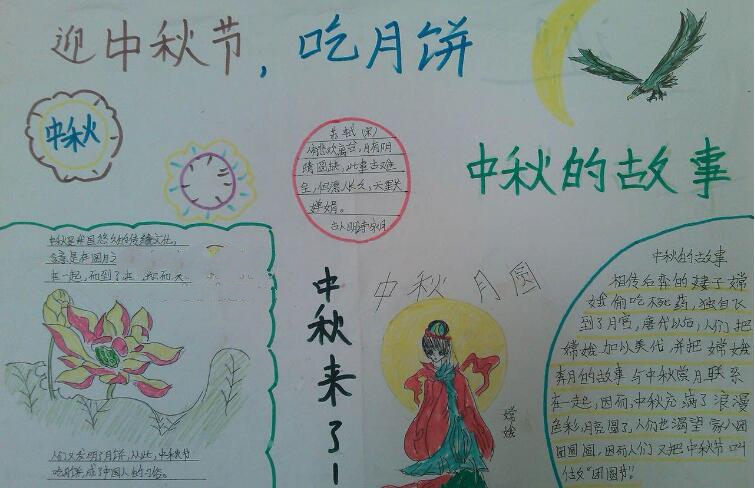 迎中秋节,吃月饼
中秋
苏轼(宋)
人有悲欢离合,月有阴
晴圆缺,此事古难
全,但愿人长久,千里共
婵娟。
中秋的故事
中秋月圆
中秋来了!
嫦娥
在一起,
人们又发明了月饼,从此,中秋节
吃月饼,成了中国人的习俗。
中秋的故事
相传后羿的妻子嫦
娥偷吃不死药,独自飞
到了月宫,唐代以后,人们把
嫦娥加以美化,并把嫦娥
奔月的故事与中秋赏月联系
在一起,因而,中秋充满了浪漫
色彩,月亮圆了,人们也渴望家人团
团圆圆,因而人们又把中秋节叫
做“团圆节”。